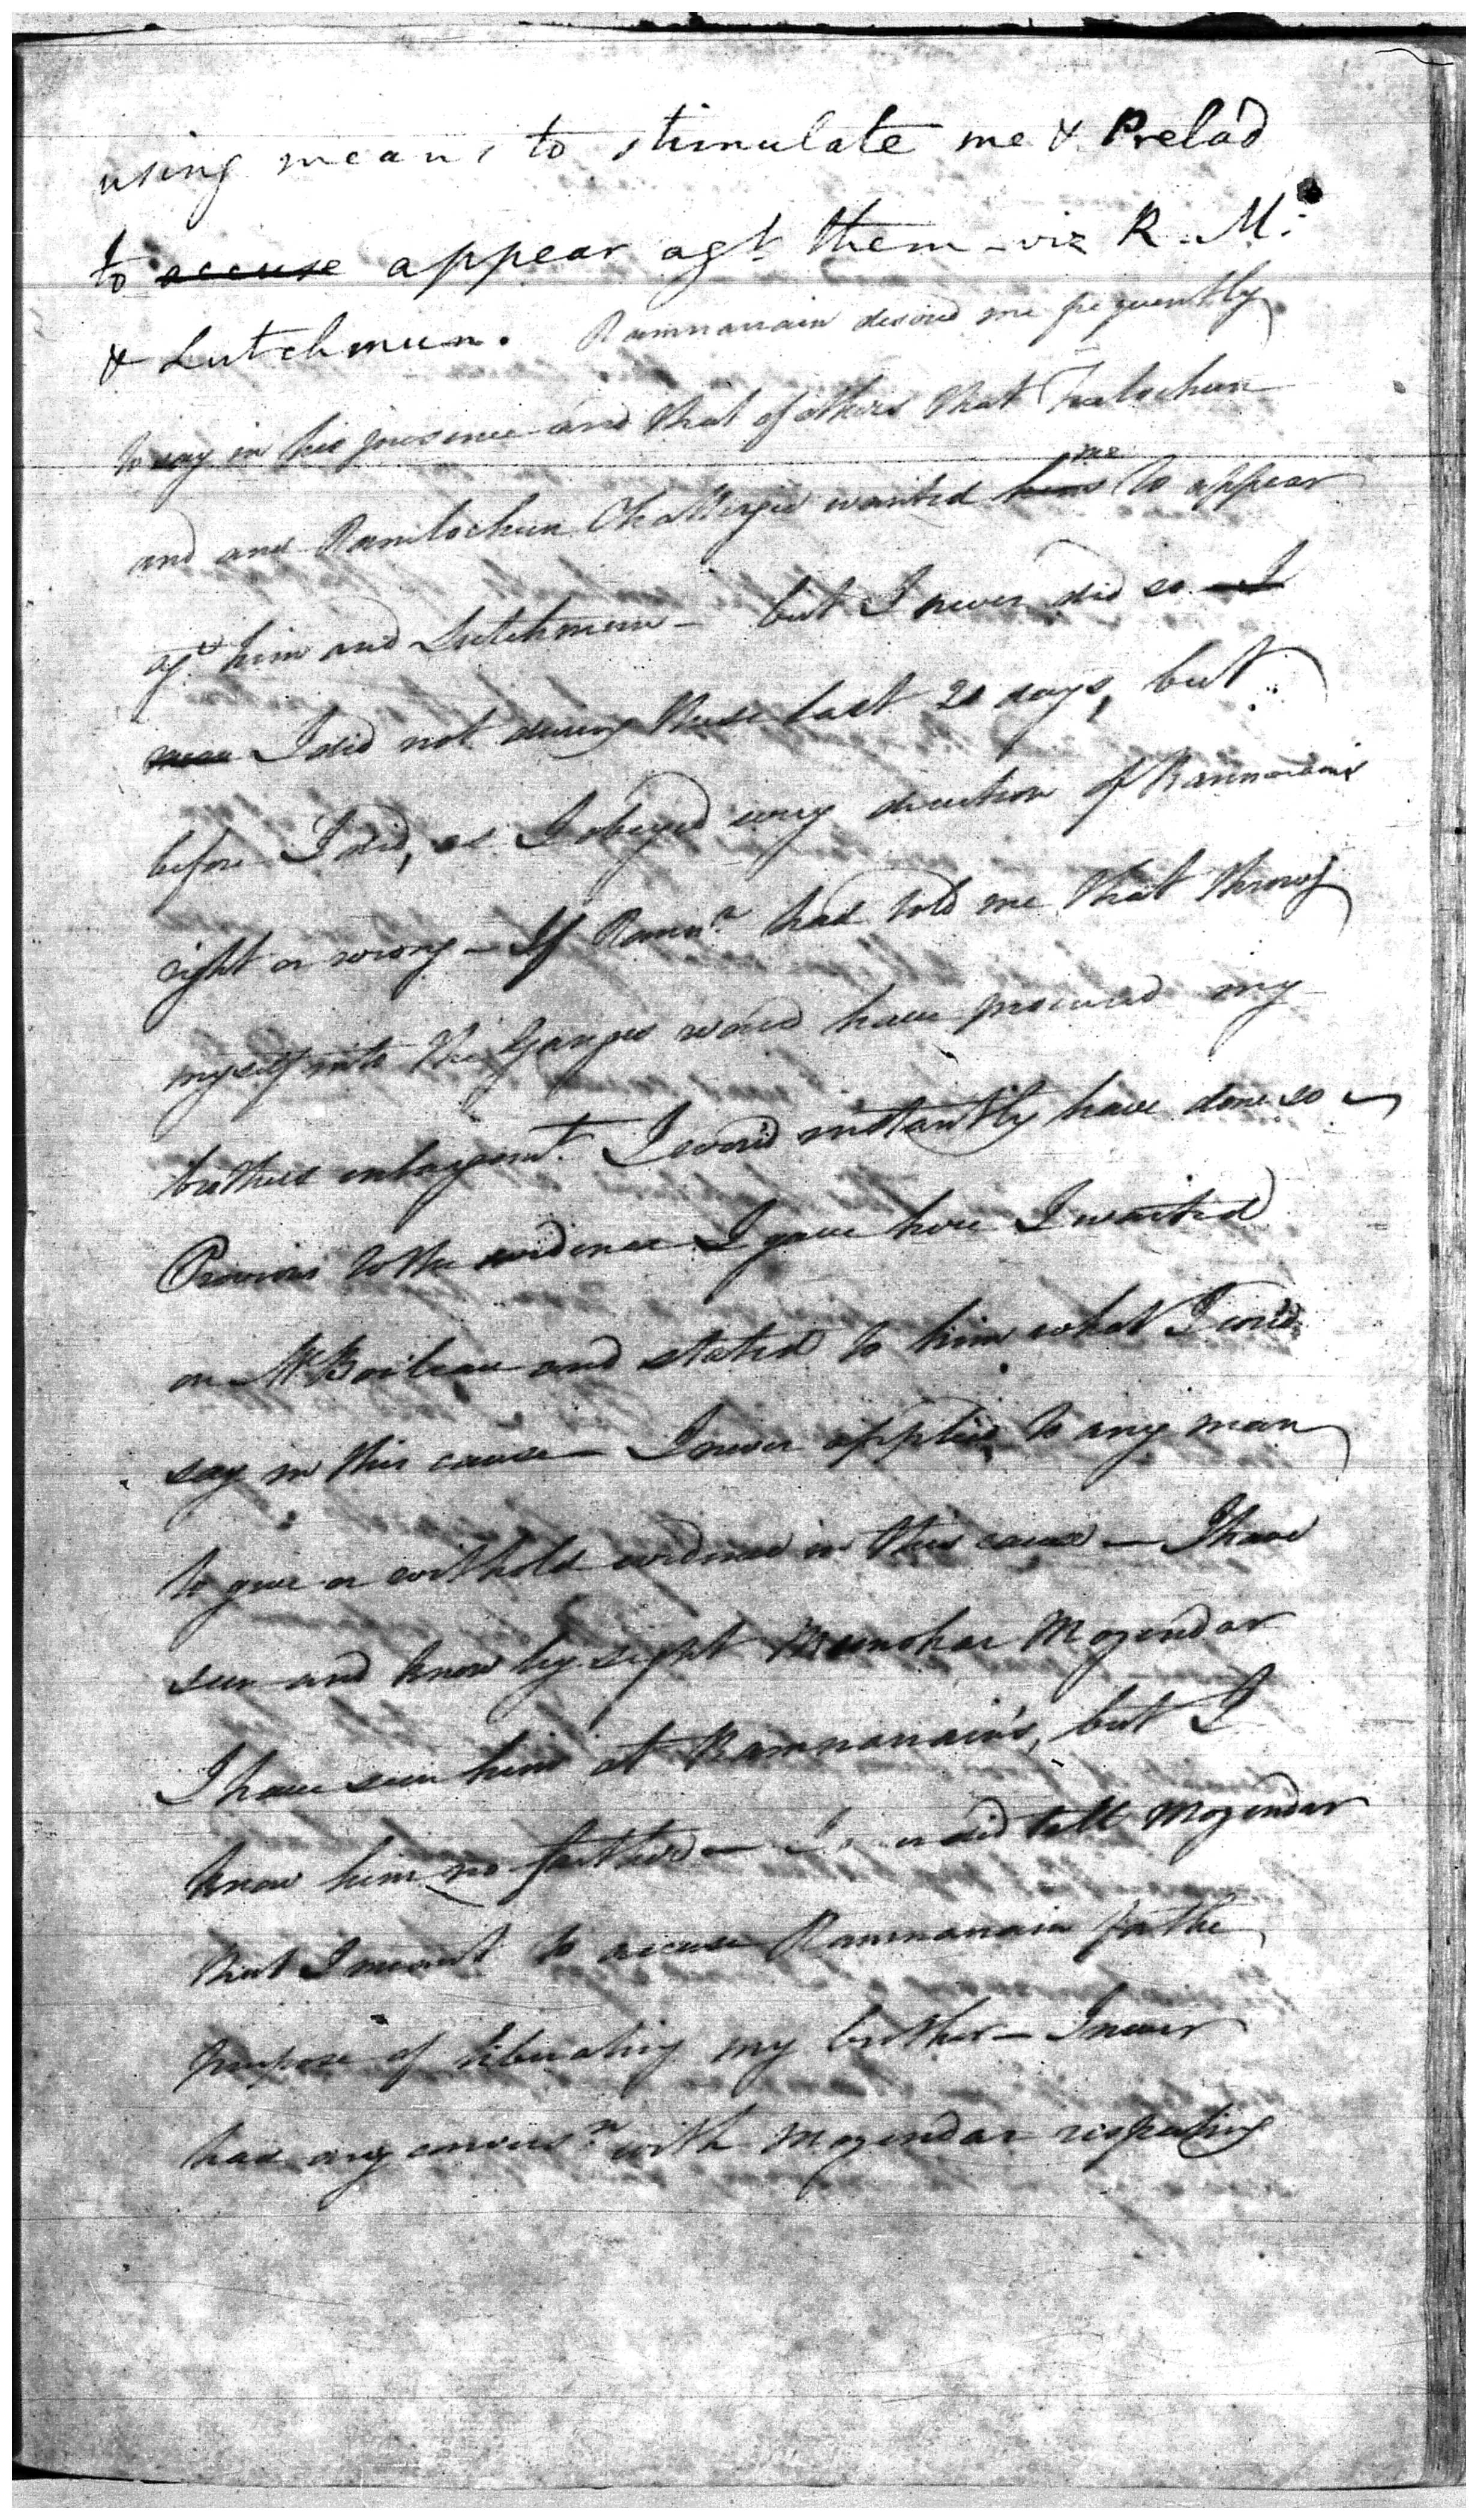 using means to stimulate me & Prelad
to accuse appear agt. them - viz R. M.
& Lutchmun. Ramnarain desired me frequently
to say in his presence and that of others that
and and Ramlochun Chatterjee wanted him me to appear
agt. him and Lutchmun - but I never did so - I
I did not during these last 20 days, but
before I did, as I obeyed every direction of Ramnarain
right or wrong - If Ramn. had told me that throwg
myself into the Ganges would have procured my
brothers enlargemt. I would instantly have done so -
Previous to the evidence I gave here I waited
on Mr Boileau and stated to him what I would
say in this cause - I never applied to any man
to give or withhold evidence in this cause - I have
seen and know by sight Munohar Mozendar
I have seen him at Ramnarain's, but I
know him no farther - I did tell Mozendar
that I meant to accuse Ramnarain for the
purpose of liberating my brother - I never
had any conversn. with Mozendar respecting